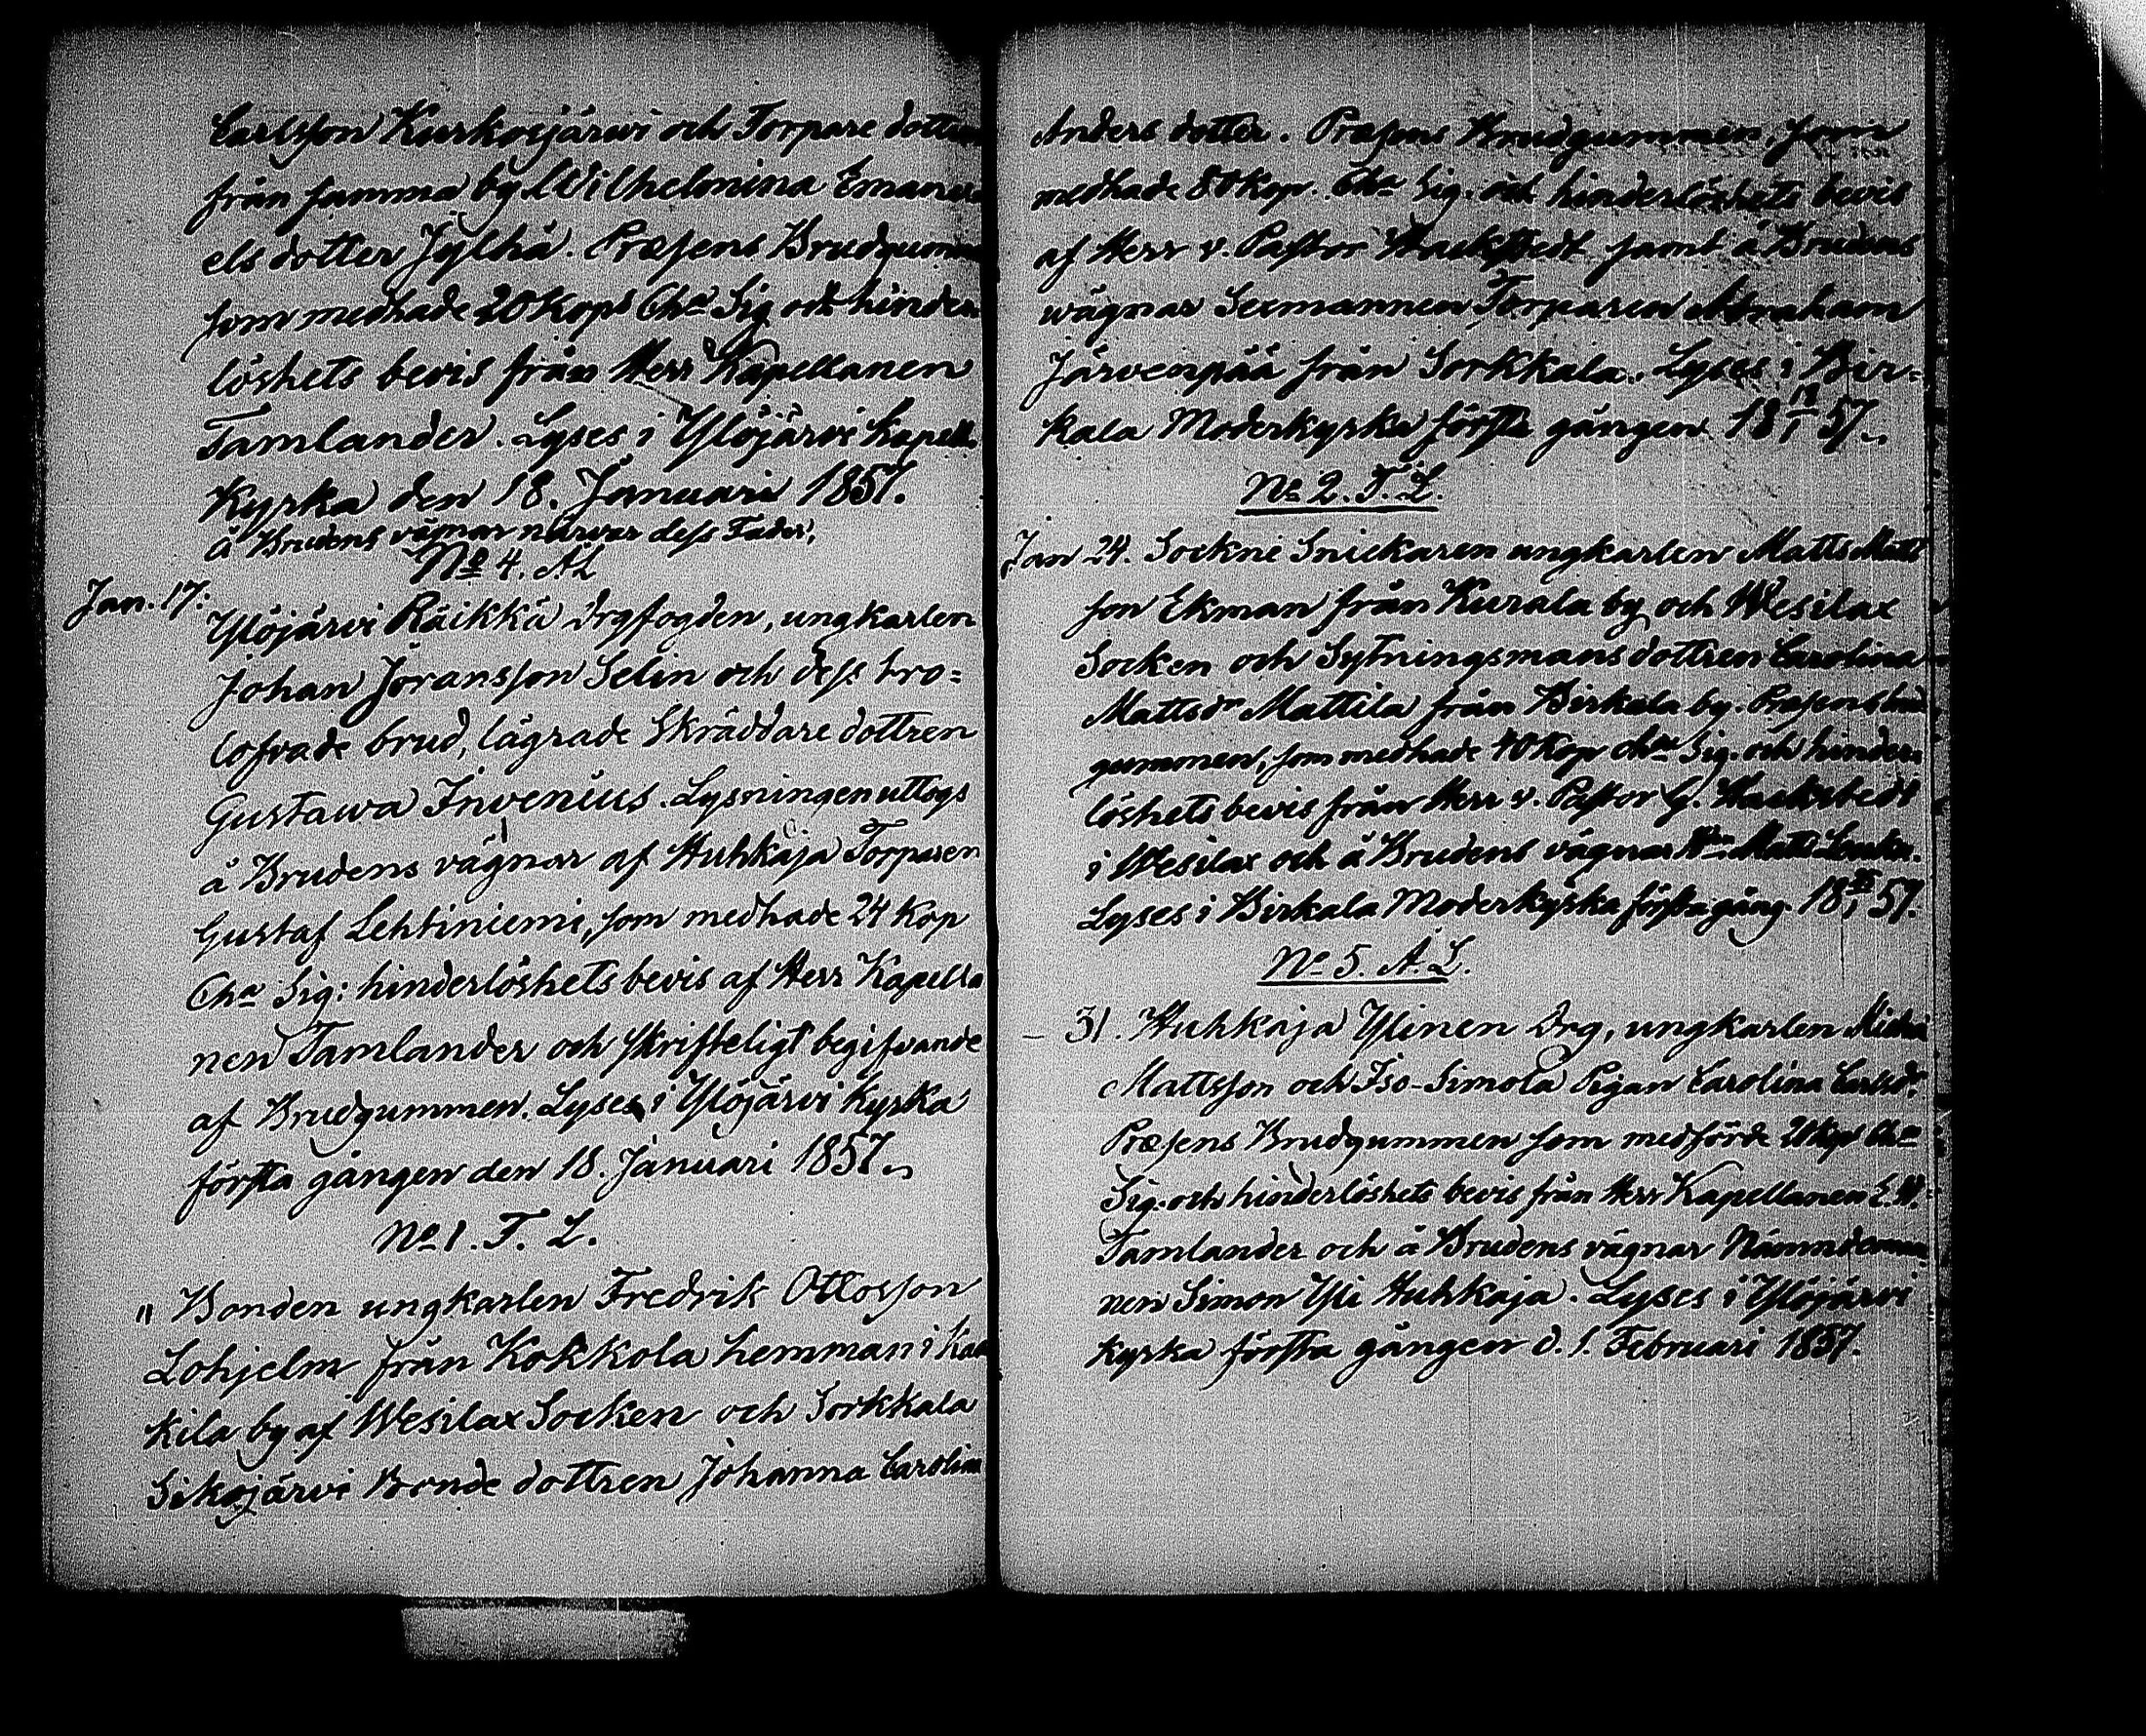 Carlsson Kurkosjärwi och Torpare dottren
från samma by Wilhelmina Emanu
els dotter Jylhä. Præsens Brudgumm
som medhade 20 Kop Cha Sig och hinder
löshets bevis från Herr Kapellanen
Tamlander. Lyses i Ylöjärvi Kapell
Kyrka den 18. Januari 1857.
å Brudens vägnar närvar dess Fader,
No 4. Å L
Jan. 17. Ylöjärvi Räikkä Drgfogden, ungkarlen
Johan Jöransson Selin och dess tro-
lofvade brud, lägrade Skräddare dottren
Gustawa Invenius. Lysningen uttogs
å Brudens vägnar af Huhkaja Torparen
Gustaf Lehtiniemi, som medhade 24 Kop
Cha Sig: hinderlöshets bevis af Herr Kapella
nen Tamlander och skrifteligt begifvande
af Brudgummen. Lyses i Ylöjärvi Kyrka
första gången den 18. Januari 1857.
No 1. F. L.
" Bonden ungkarlen Fredrik Ottosson
Lohjelm från Kokkola hemman i Kaa
kila by af Wesilax Socken och Sorkkala
Sikojärvi Bonde dottren Johanna Carolina
Anders dotter. Præsens Brudgummen, som
medhade 80 Kop. Cha Sig. och hinderlöshets bevis
af Herr v. Pastor Hackstedt samt å Brudens
wägnar Sexmannen Torparen Abraham
Järvenpää från Sorkkala. Lyses i Bir-
kala Moderkyrka första gången 18 18/1 57.
No 2. F. L.
Jan 24. Sockne Snickaren ungkarlen Matts Matts
son Ekman från Kurala by och Wesilax
Socken och Sytningsmans dottren Carolina
Mattsdr Mattila från Birkala by. Præsens brud
gummen, som medhade 40 Kop cha Sig. och hinder
löshets bevis från Herr v. Pastor G. Hackstedt
i Wesilax och å Brudens vägnar Matts
Lyses i Birkala Moderkyrka första gång. 18 25/1 57.
No 5. Å. L.
— 31. Huhkaja Ylinen Drg, ungkarlen Michel
Mattsson och Iso-Simola Pigan Carolina Carlsdr
Præsens Brudgummen som medförde 20 Kop Cha
Sig. och hinderlöshets bevis från Herr Kapellanen E. W.
Tamlander och å Brudens vägnar Nämndeman
nen Simon Yli Huhkaja. Lyses i Ylöjärvi
kyrka första gången d. 1. Februari 1857.